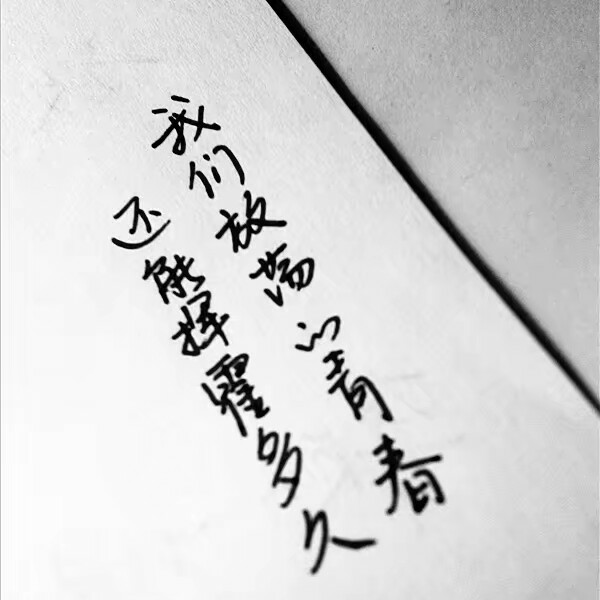 我们放荡的青春
还能挥霍多久